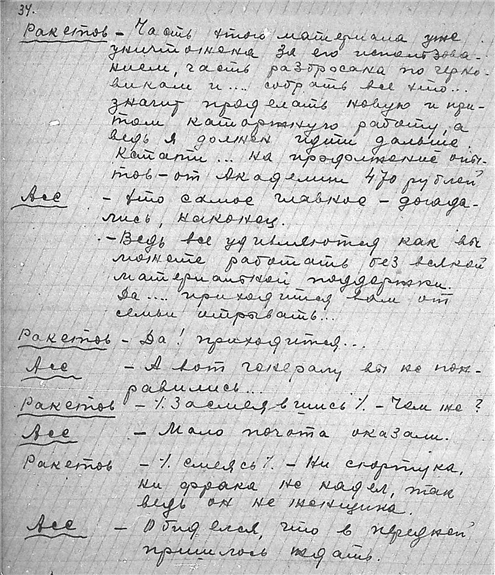 34.
Ракетов – Часть этого материала уже
уничтожена за его использова-
нием, часть разбросана по черно-
викам и.... собрать все это...
значит проделать новую и при-
том каторжную работу, а
ведь я должен идти дальше.
Кстати... на продолжение опы-
тов – от Академии 470 рублей
Асс – Это самое главное – догада-
лись, наконец.
– Ведь все удивляются как вы
можете работать без всякой
материальной поддержки.
Да.... приходится вам от
семьи отрывать...
Ракетов – Да! приходится...
Асс – А вот генералу вы не пон-
равились...
Ракетов – % Засмеявшись % – Чем же?
Асс – Мало почота оказали.
Ракетов – % смеясь % – Ни сюртука,
ни фрака не надел, так
ведь он не женщина.
Асс – Обиделся, что в передней
пришлось ждать.